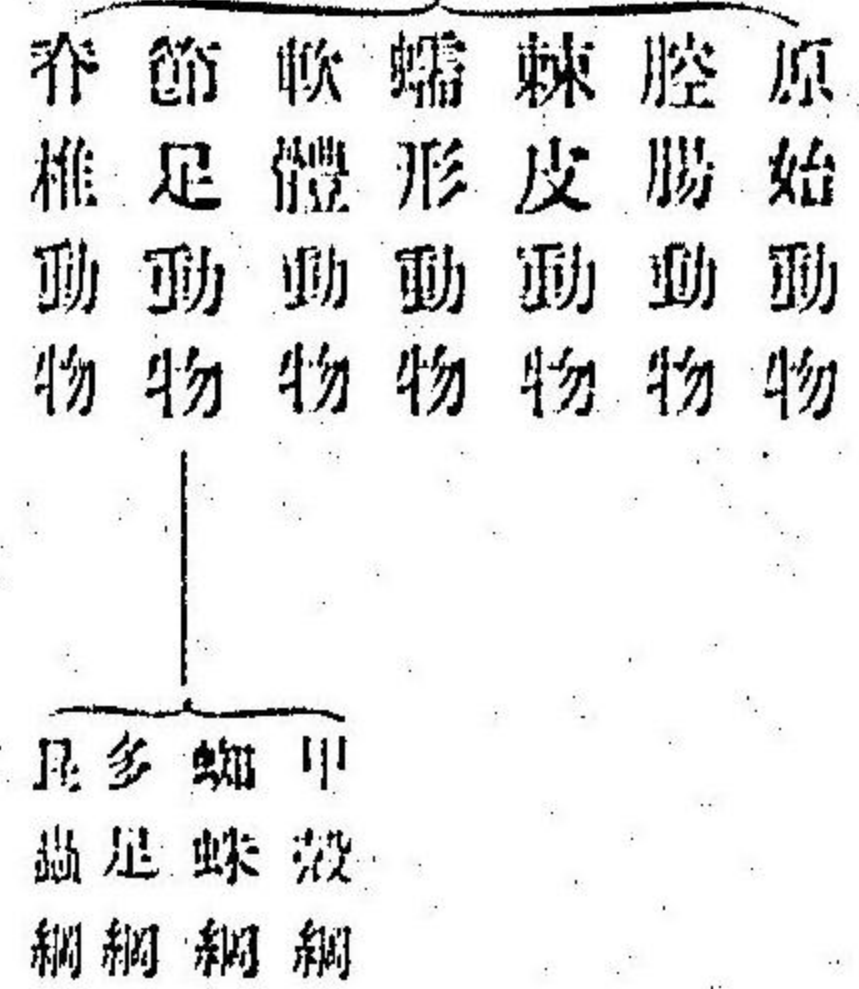 原始動物
腔腸動物
棘皮動物
蠕形動物
軟體動物
節足動物
脊椎動物
甲殼綱
蜘蛛綱
多足綱
昆蟲綱